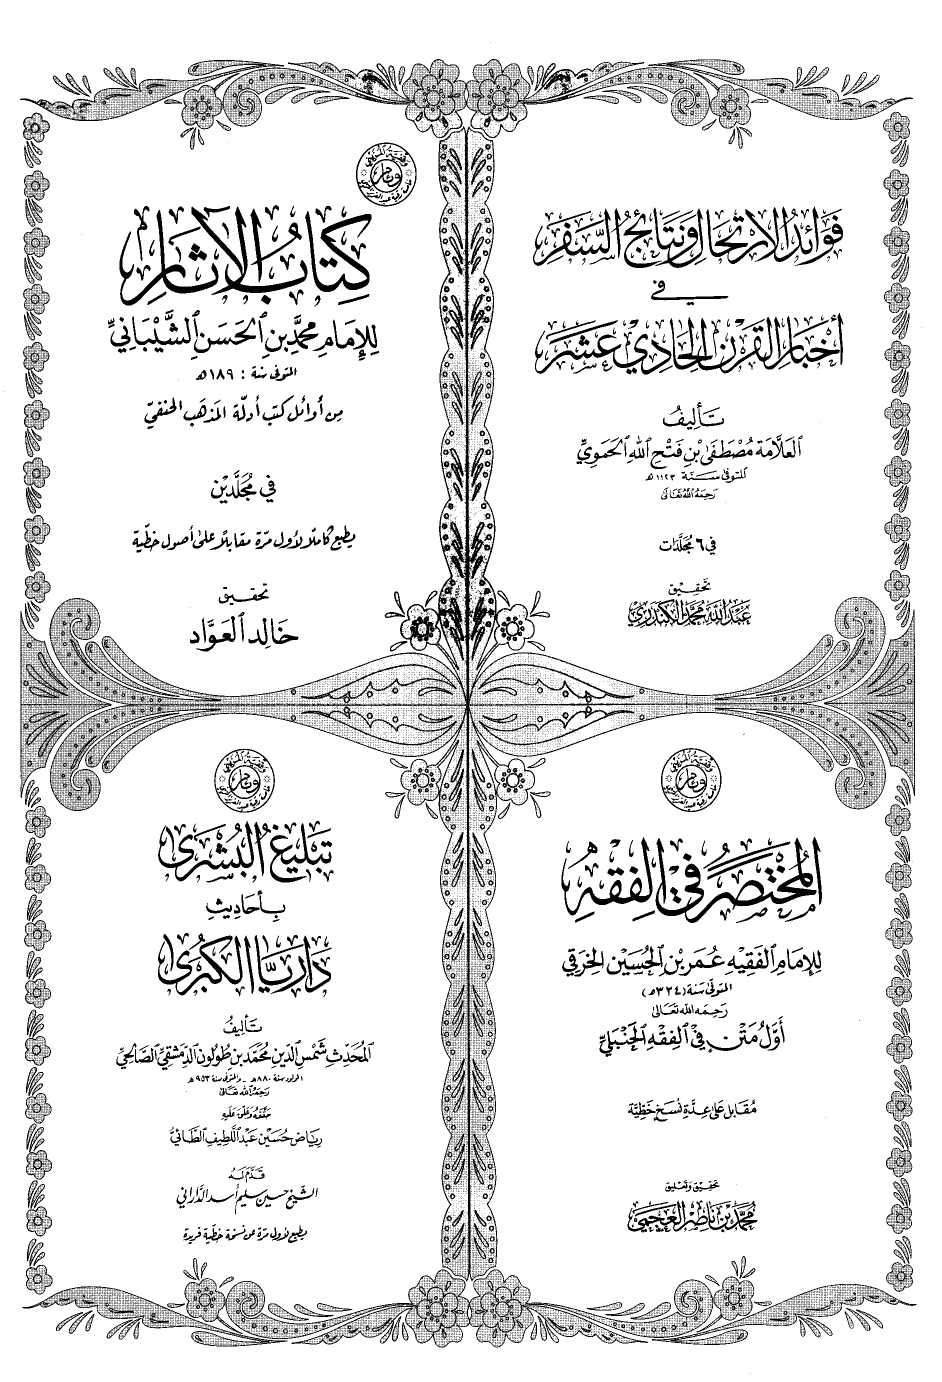 فَوَائِدُ الاِرْتِحَالِ وَنَتَائِجُ السَّفَرِ
في
أَخْبَارِ القَرْنِ الحَادِي عَشَرَ
تَأليفُ
العَلَّامَة مُصْطَفَى بْنِ فَتْحِ اللهِ الحَمَوِيِّ
المتوفى سَنَة ١١٢٣ هـ
رَحِمَهُ اللهُ تَعَالَى
في ٦ مُجَلَّدَات
تَحْقِيق
عَبْدُ اللهِ مُحَمَّد الكَنْدَرِي
كِتَابُ الآثَارِ
لِلإِمَامِ مُحَمَّدِ بْنِ الحَسَنِ الشَّيْبَانِيِّ
المتوفى سنة : ١٨٩ هـ
مِن أوائل كتب أدلّة المذهَب الحنفيّ
في مُجَلَّدين
يطبع كاملاً لأول مرّة مقابلاً على أصول خطّية
تحقيق
خَالِد العَوَّاد
المُخْتَصَرُ فِي الفِقْهِ
لِلإِمَامِ الفَقِيْهِ عُمَرَ بْنِ الحُسَيْنِ الخِرَقِي
المتوفى سَنة (٣٣٤ هـ)
رَحِمَه الله تَعَالى
أَوَّلُ مَتْنٍ فِي الفِقْهِ الحَنْبَلِيِّ
مُقَابَل عَلى عِدَّةِ نُسَخٍ خَطِّيَّة
تحقيق وتعليق
مُحَمَّد بْن نَاصِر العَجَمِي
تَبْلِيغُ البُشْرَى
بِأَحَادِيثِ
دَارِيَّا الكُبْرَى
تَأليفُ
المُحَدِّثِ شَمْسِ الدِّينِ مُحَمَّدِ بْنِ طُولُونَ الدِّمَشْقِيِّ الصَّالِحِيِّ
المولود سنة ٨٨٠ هـ - والمتوفى سنة ٩٥٣ هـ
رَحِمَهُ الله تَعَالَى
حَقَّقَهُ وَعَلَّقَ عَلَيْهِ
رِيَاض حُسَيْن عَبْد اللَّطِيف الطَّائِيُّ
قَدَّمَ لَهُ
الشَّيخ حسين سليم أسد الدَّاراني
يطبع لأول مرّة عن نسخة خطّية فريدة